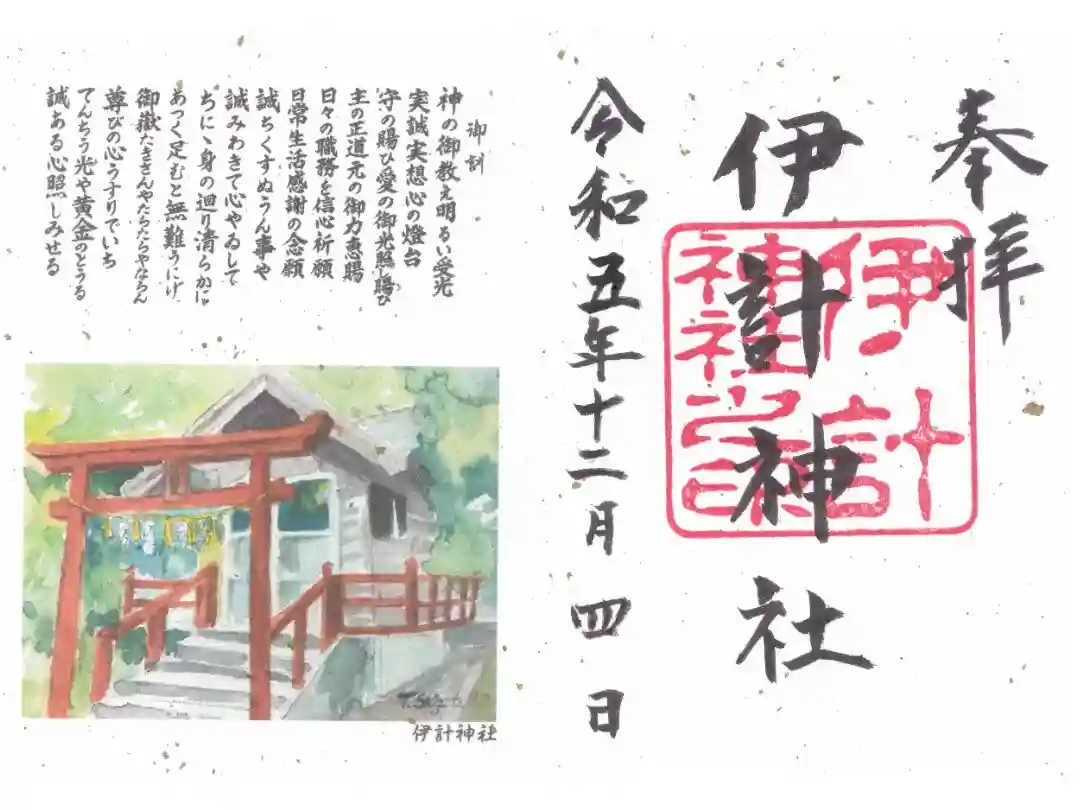 奉拝
伊計神社
伊計
神社之印
令和五年十二月四日
御訓
神の御教え明るい受光
実誠実想心の燈台
守の賜ひ愛の御光照し賜ひ
主の正道元の御力恵賜
日々の職務を信心祈願
日常生活感謝の念願
誠ちくすぬうん事や
誠みわきて心やゐして
ちにゝ身の廻り清らかに
あっく足むと無難うにげ
御嶽たきさんやたちたらやならん
尊びの心うすりでいち
てんちう光や黄金のとうる
誠ある心照しみせる
伊計神社